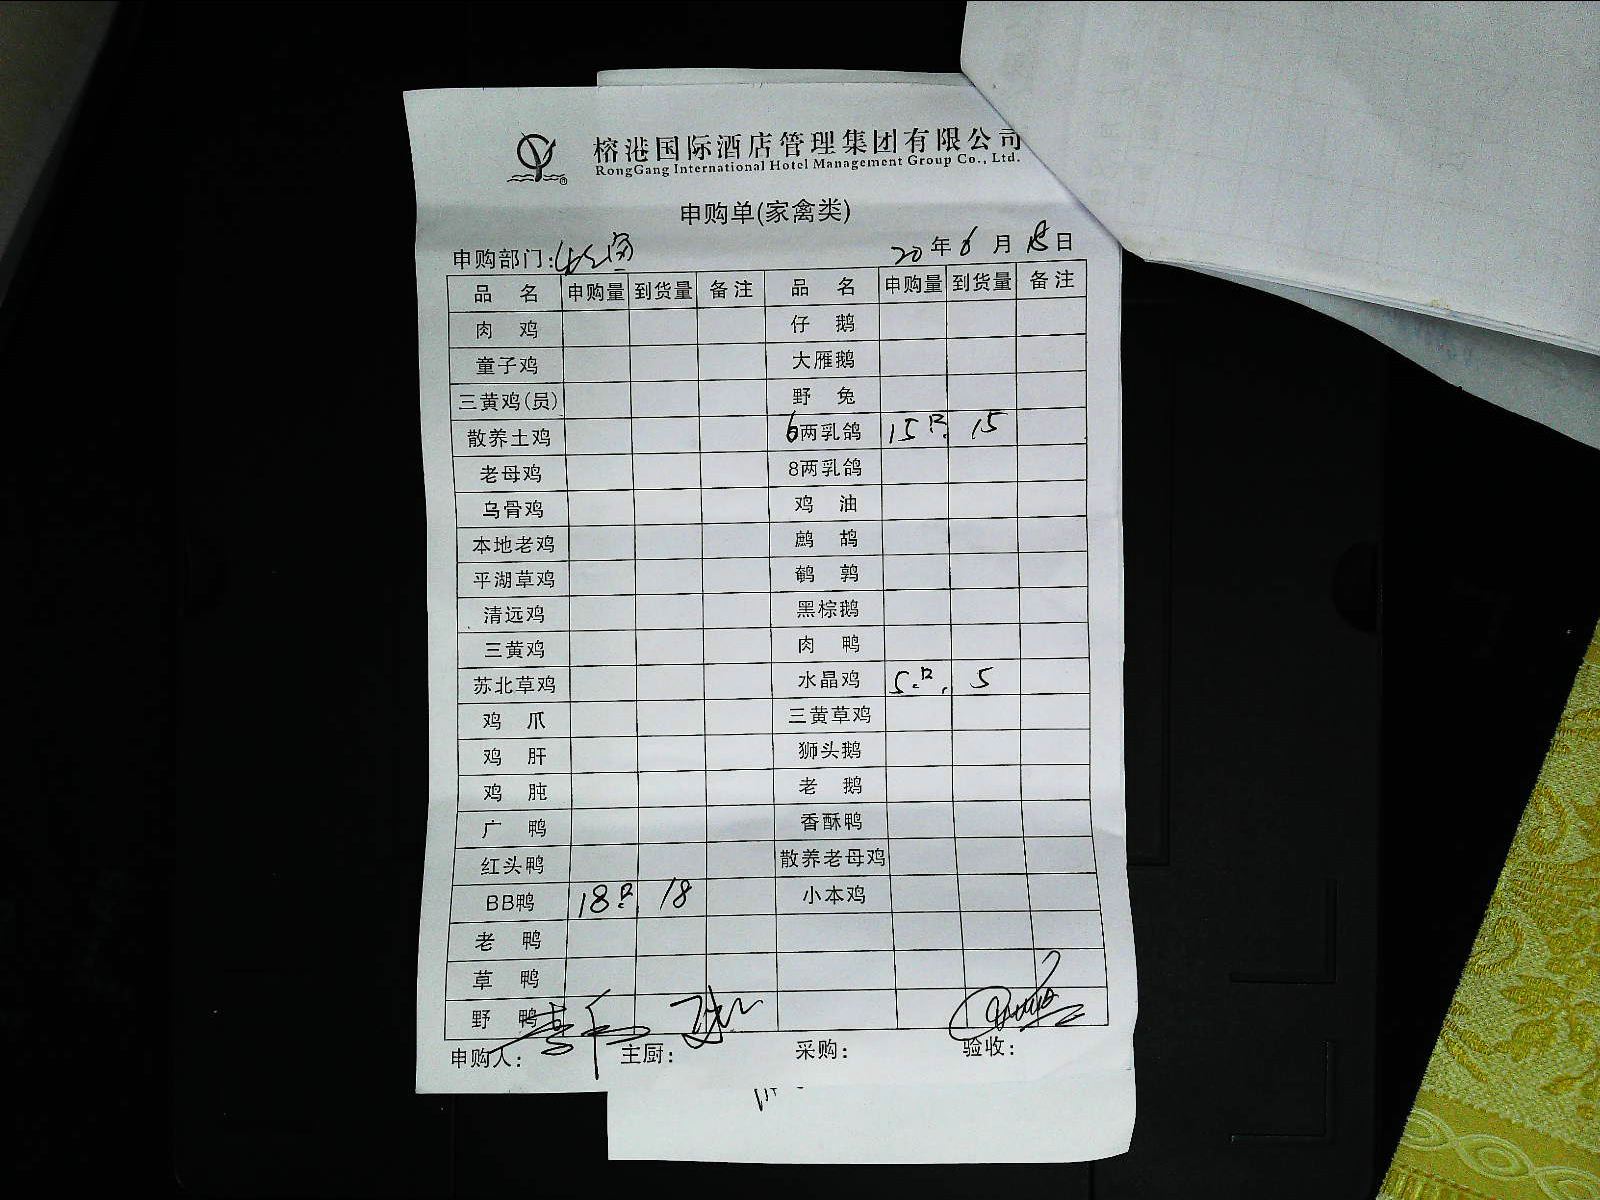 榕港国际酒店管理集团有限公司
RongGang International Hotel Management Group Co., Ltd.
申购单(家禽类)
申购部门: 20年6月18日
品名 申购量 到货量 备注 品名 申购量 到货量 备注
肉鸡 仔鹅
童子鸡 大雁鹅
三黄鸡(员) 野兔
散养土鸡 6两乳鸽 15只 15
老母鸡 8两乳鸽
乌骨鸡 鸡油
本地老鸡 鹧鸪
平湖草鸡 鹌鹑
清远鸡 黑棕鹅
三黄鸡 肉鸭
苏北草鸡 水晶鸡 5只. 5
鸡爪 三黄草鸡
鸡肝 狮头鹅
鸡肫 老鹅
广鸭 香酥鸭
红头鸭 散养老母鸡
BB鸭 18只 18 小本鸡
老鸭
草鸭
野鸭
申购人: 主厨: 采购: 验收: